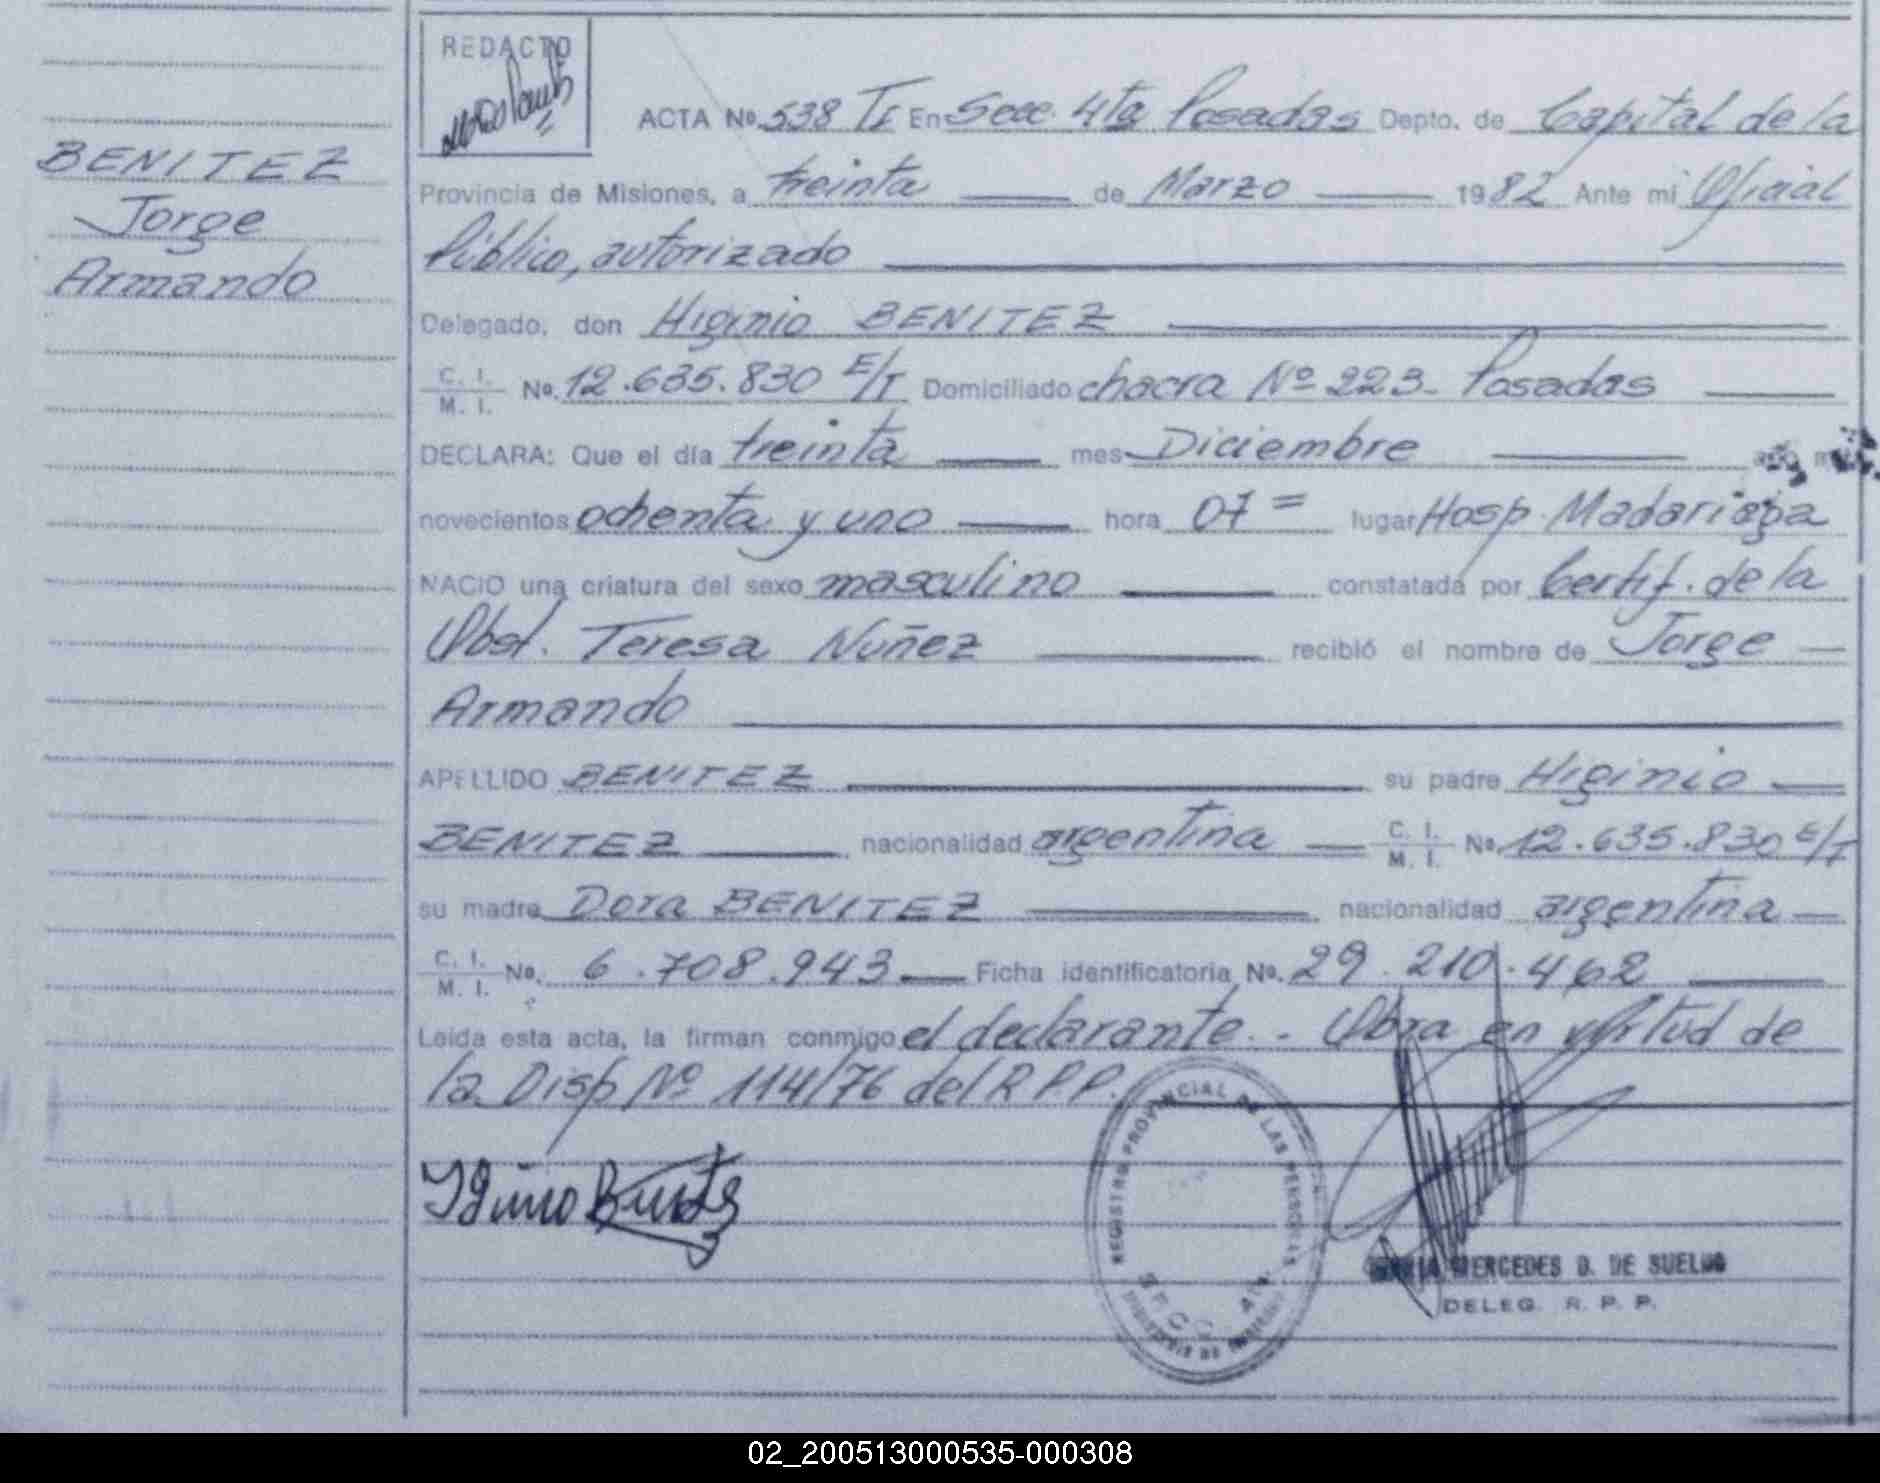 BENITEZ
Jorge
Armando
REDACTO
ACTA No. 538 TI En Secc. 4ta Posadas Depto. de Capital de la
Provincia de Misiones, a treinta de Marzo 1982 Ante mi Oficial
Público, autorizado
Delegado, don Higinio BENITEZ
C. I. / M. I. No. 12.635.830 E/T Domiciliado chacra Nº 223- Posadas
DECLARA: Que el día treinta mes Diciembre año mil
novecientos ochenta y uno hora 07= lugar Hosp. Madariaga
NACIO una criatura del sexo masculino constatada por Certif. de la
Obst. Teresa Nuñez recibió el nombre de Jorge
Armando
APELLIDO BENITEZ su padre Higinio
BENITEZ nacionalidad argentina C. I. / M. I. No. 12.635.830 E/T
su madre Dora BENITEZ nacionalidad argentina
C. I. / M. I. No. 6.708.943 Ficha identificatoria No. 29.210.462
Leída esta acta, la firman conmigo el declarante. - Obra en virtud de
la Disp Nº 114/76 del R.P.P.
REGISTRO PROVINCIAL DE LAS PERSONAS
SECC. 4ta.
MERCEDES D. DE SUELDO
DELEG. R. P. P.
02_200513000535-000308